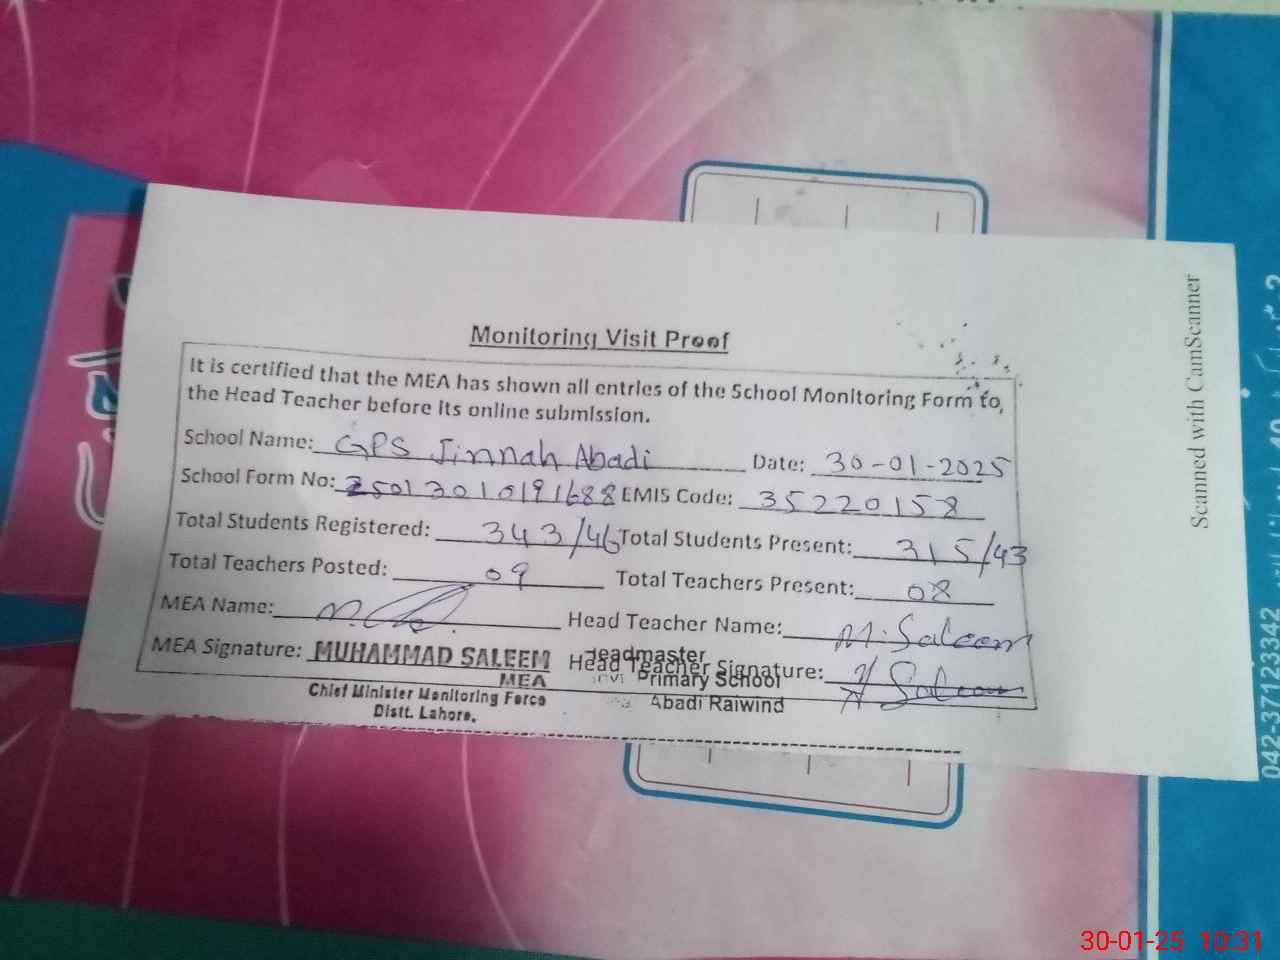 Monitoring Visit Proof
It is certified that the MEA has shown all entries of the School Monitoring Form to,
the Head Teacher before its online submission.
School Name: GPS Jinnah Abadi Date: 30-01-2025
School Form No: 25013010191688 EMIS Code: 35220158
Total Students Registered: 343/46 Total Students Present: 315/43
Total Teachers Posted: 09 Total Teachers Present: 08
MEA Name: Head Teacher Name: M. Saleem
MEA Signature: MUHAMMAD SALEEM Head Teacher Signature: Saleem
MEA
Chief Minister Monitoring Force
Distt. Lahore.
Headmaster
Primary School
Abadi Raiwind
Scanned with CamScanner
042-37123342
30-01-25 10:31